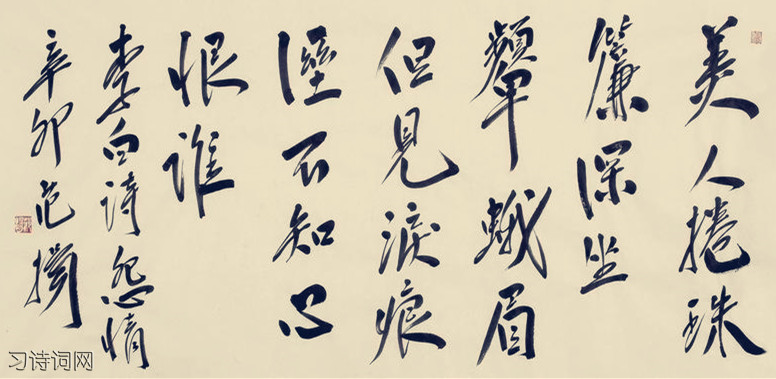 美人捲珠
簾深坐
顰蛾眉
但見淚痕
溼不知心
恨谁
李白诗怨情
辛卯范
习诗词网